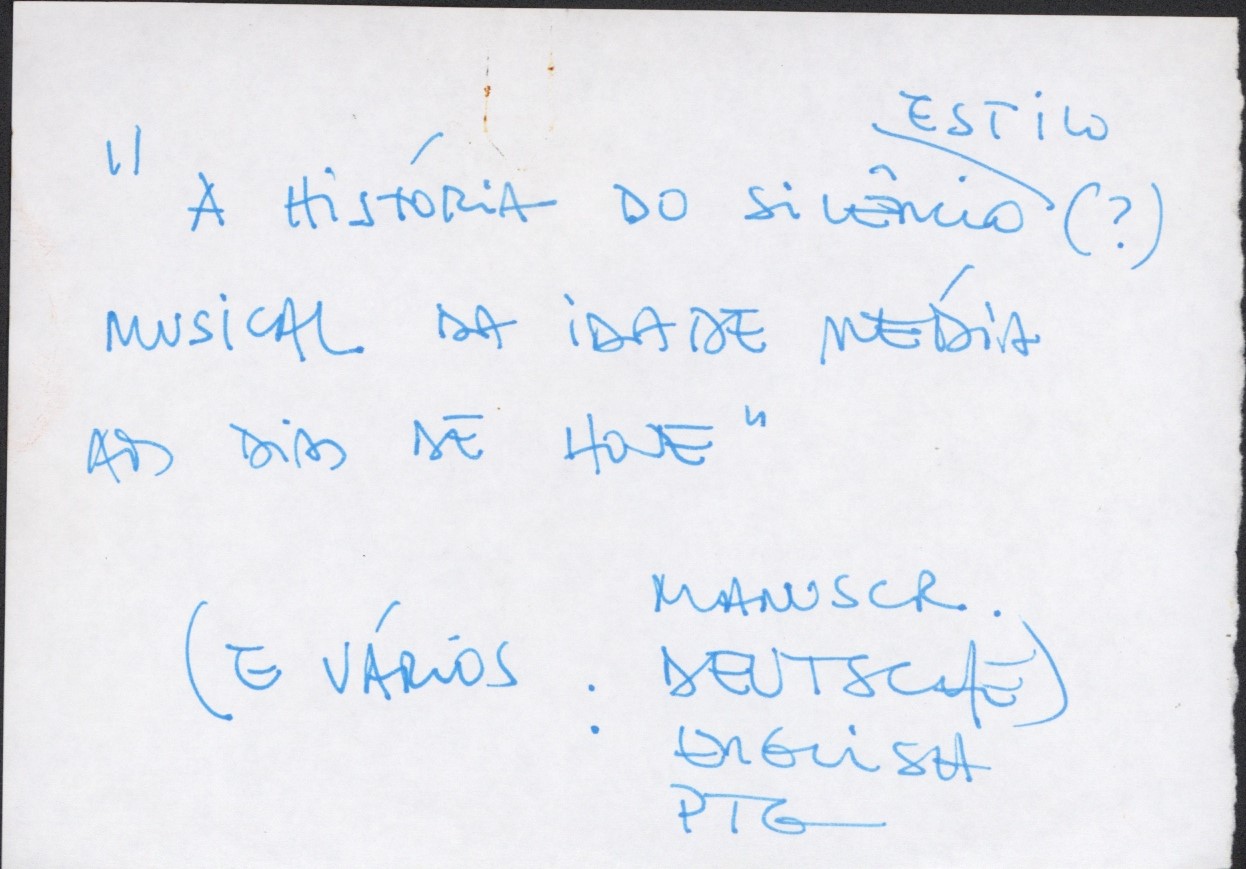 ESTILO
"A HISTÓRIA DO SILÊNCIO (?)
MUSICAL DA IDADE MÉDIA
AOS DIAS DE HOJE"
MANUSCR.
(E VÁRIOS : DEUTSCHE)
ENGLISH
PTG